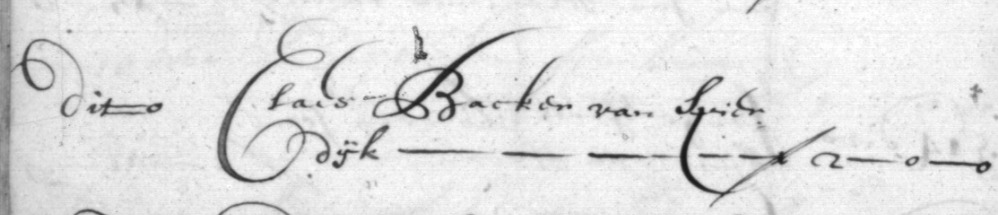 dito Claes Backer van Spier
dijk — — — — — ƒ 2—0—0